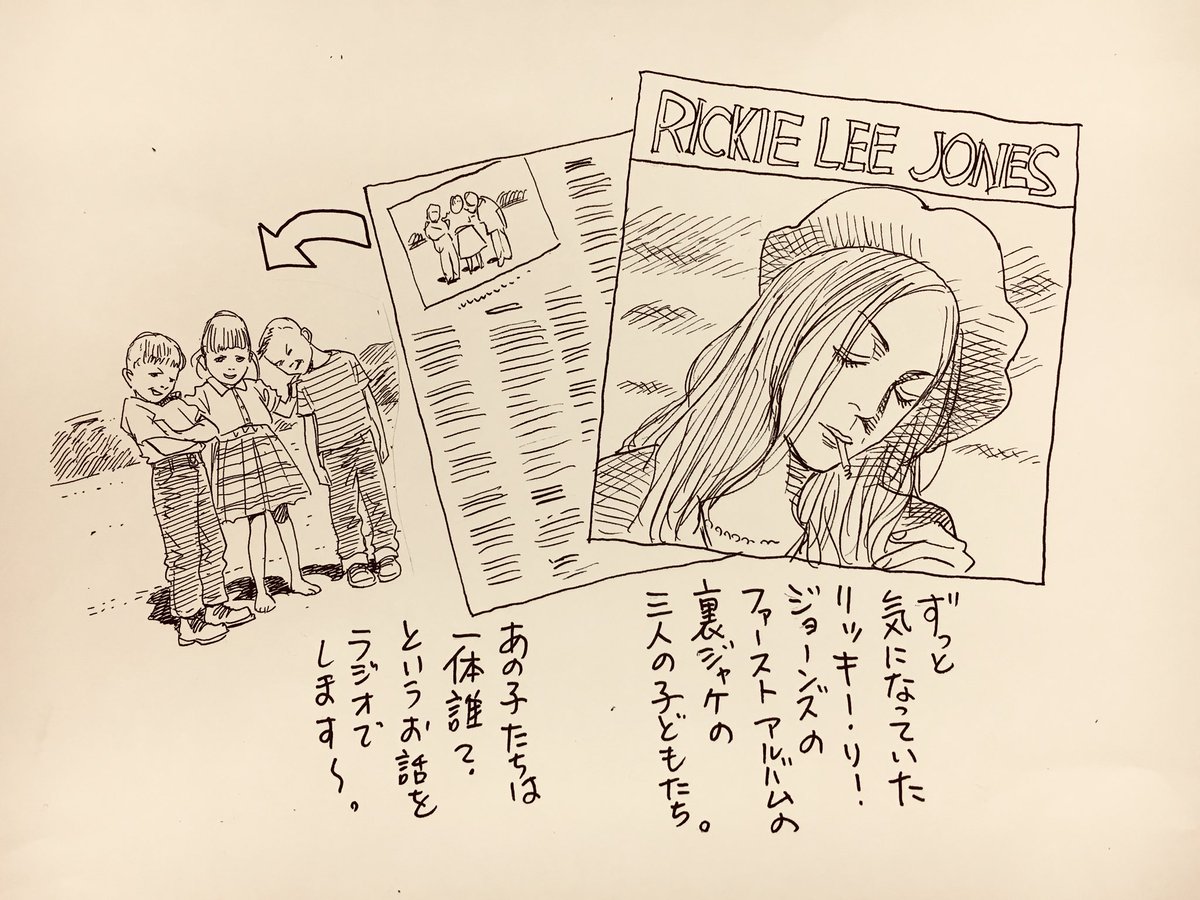 RICKIE LEE JONES
ずっと
気になっていた
リッキー・リー・
ジョーンズの
ファーストアルバムの
裏ジャケの
三人の子どもたち。
あの子たちは
一体誰?
というお話を
ラジオで
します〜。